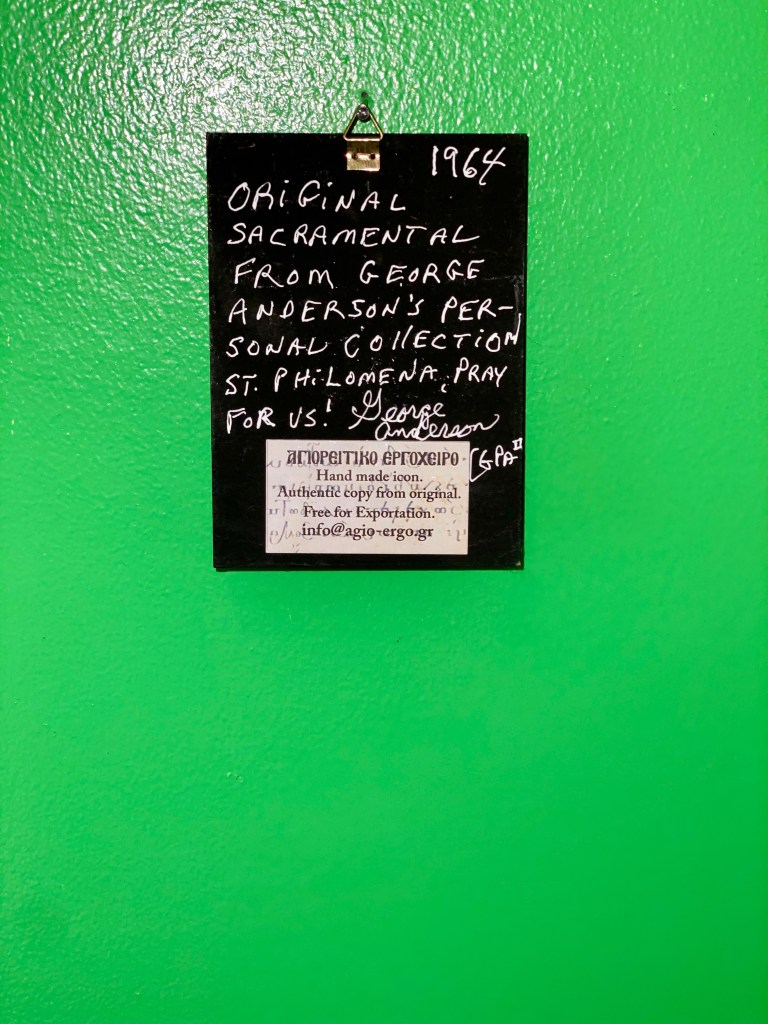 1964
ORIGINAL
SACRAMENTAL
FROM GEORGE
ANDERSON'S PER-
SONAL COllECTION
ST. PHILOMENA, PRAY
FOR US! George
Anderson
[GPA II
ΑΓΙΟΡΕΙΤΙΚΟ ΕΡΓΟΧΕΙΡΟ
Hand made icon.
Authentic copy from original.
Free for Exportation.
info@agio-ergo.gr